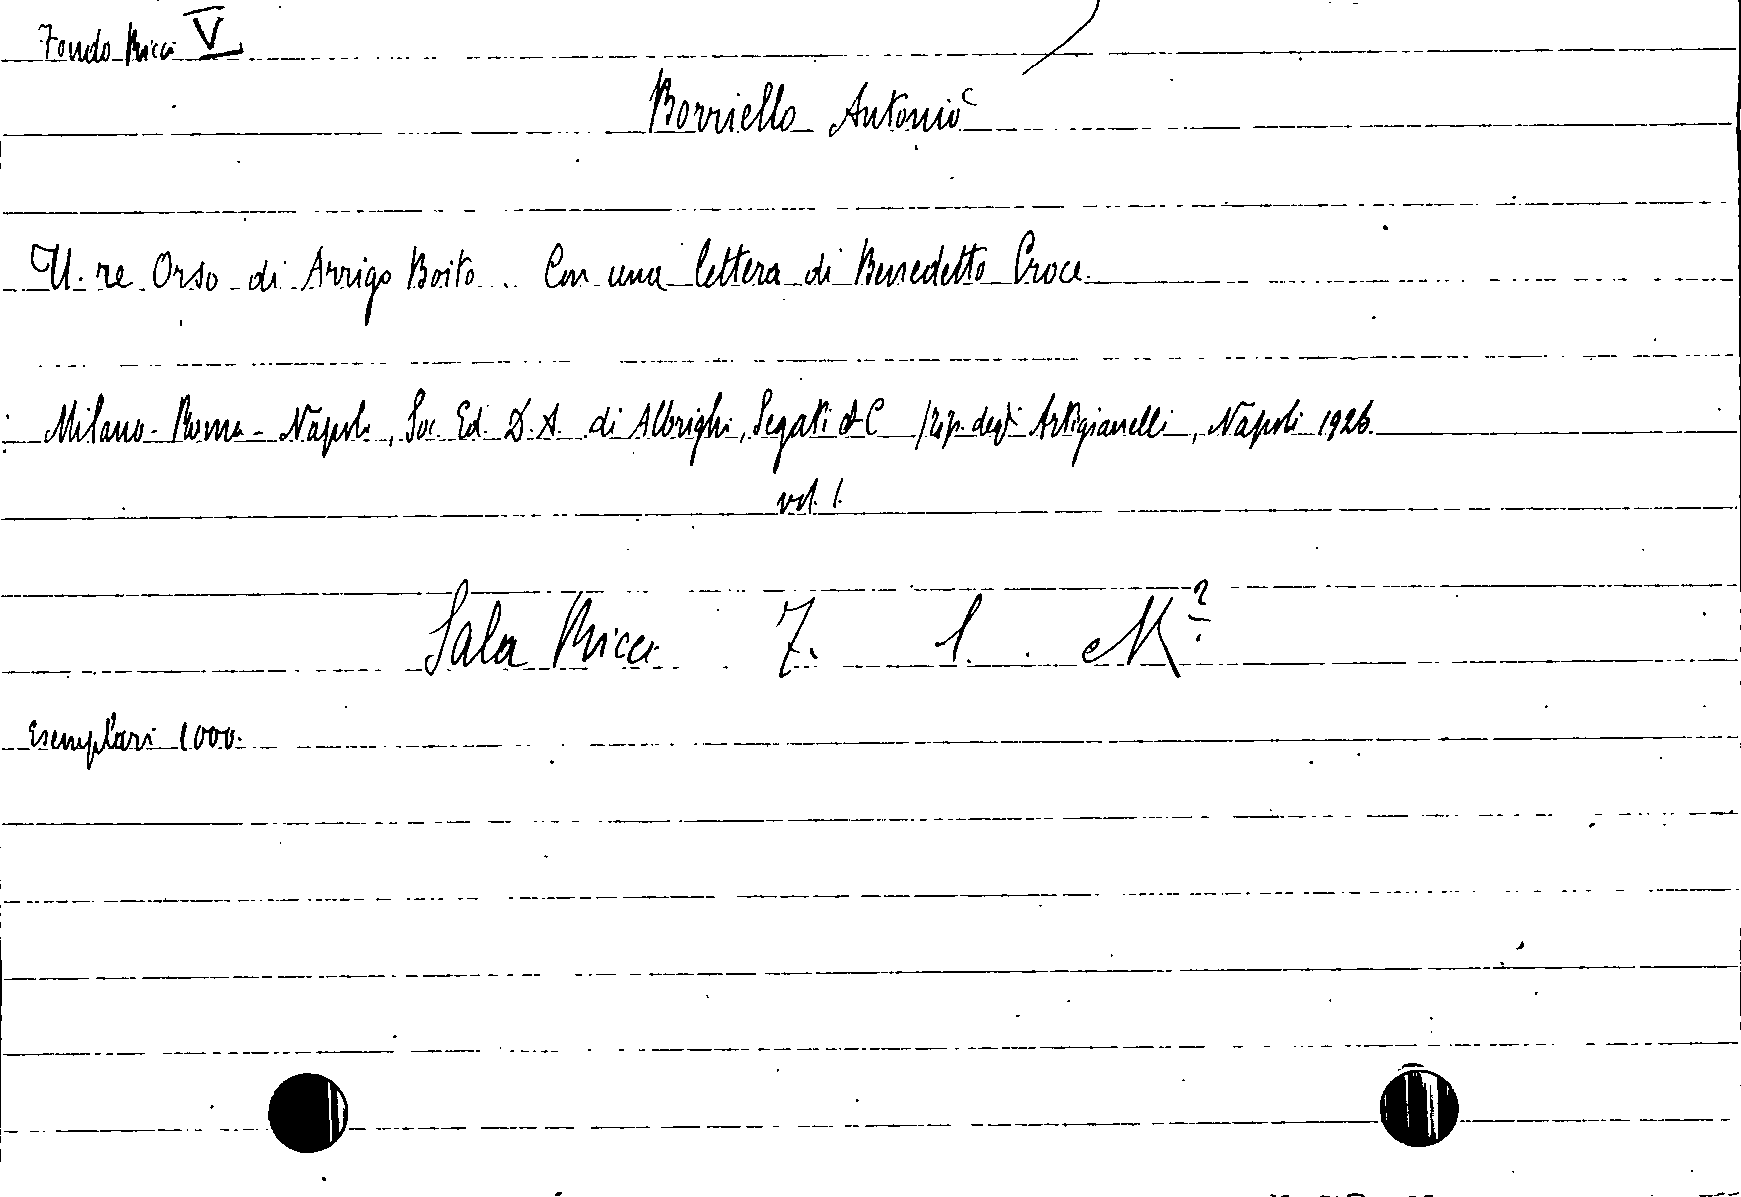 Fondo Ricci V
Borriello Antonio
Il re Orso di Arrigo Boito. Con una lettera di Benedetto Croce.
Milano - Roma - Napoli, Soc. Ed. D. A. di Albrighi, Segati & C /Tip. degli Artigianelli, Napoli 1926.
vol. 1.
Sala Ricci 7. 1. M?
Esemplari 1000.